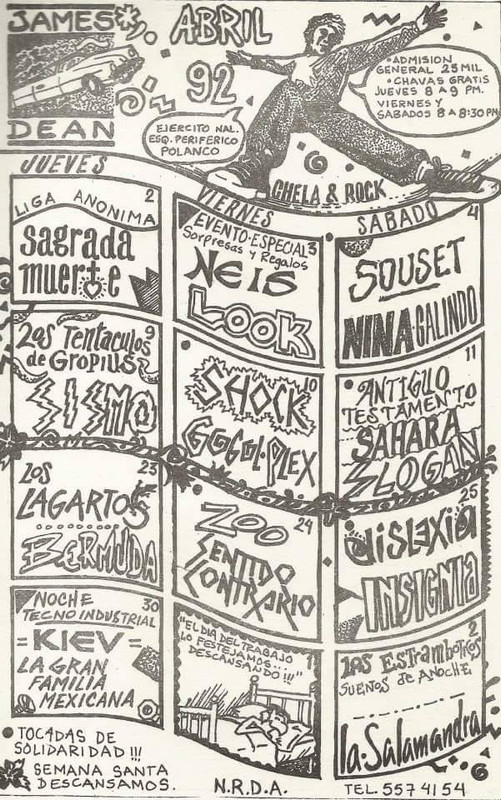 JAMES
DEAN
ABRIL
92
EJERCITO NAL.
ESQ. PERIFÉRICO
POLANCO
• ADMISION
GENERAL 25 MIL
• CHAVAS GRATIS
JUEVES 8 A 9 PM.
VIERNES Y
SABADOS 8 A 8:30 PM
CHELA & ROCK
JUEVES
VIERNES
SABADO
2
LIGA ANONIMA
sagrada
muerte
EVENTO·ESPECIAL 3
Sorpresas y Regalos
NEIS
LOOK
4
SOUSET
NINA·GALINDO
9
Los Tentaculos
de Gropius
SISMO
10
SHOCK
GOGOL·PLEX
11
• ANTIGUO
TESTAMENTO
SAHARA
SLOGAN
23
LOS
LAGARTOS
BERMUDA
24
ZOO
SENTIDO
CONTRARIO
25
DISLEXIA
INSIGNIA
30
NOCHE
TECNO INDUSTRIAL
=KIEV=
LA GRAN
FAMILIA
MEXICANA
1
"EL DIA DEL TRABAJO
LO FESTEJAMOS...
DESCANSANDO!!!"
2
LOS Estrambóticos
SUEÑOS de ANOCHE
la·Salamandra
• TOCADAS DE
SOLIDARIDAD !!!
SEMANA SANTA
DESCANSAMOS.
N.R.D.A.
TEL. 557 41 54